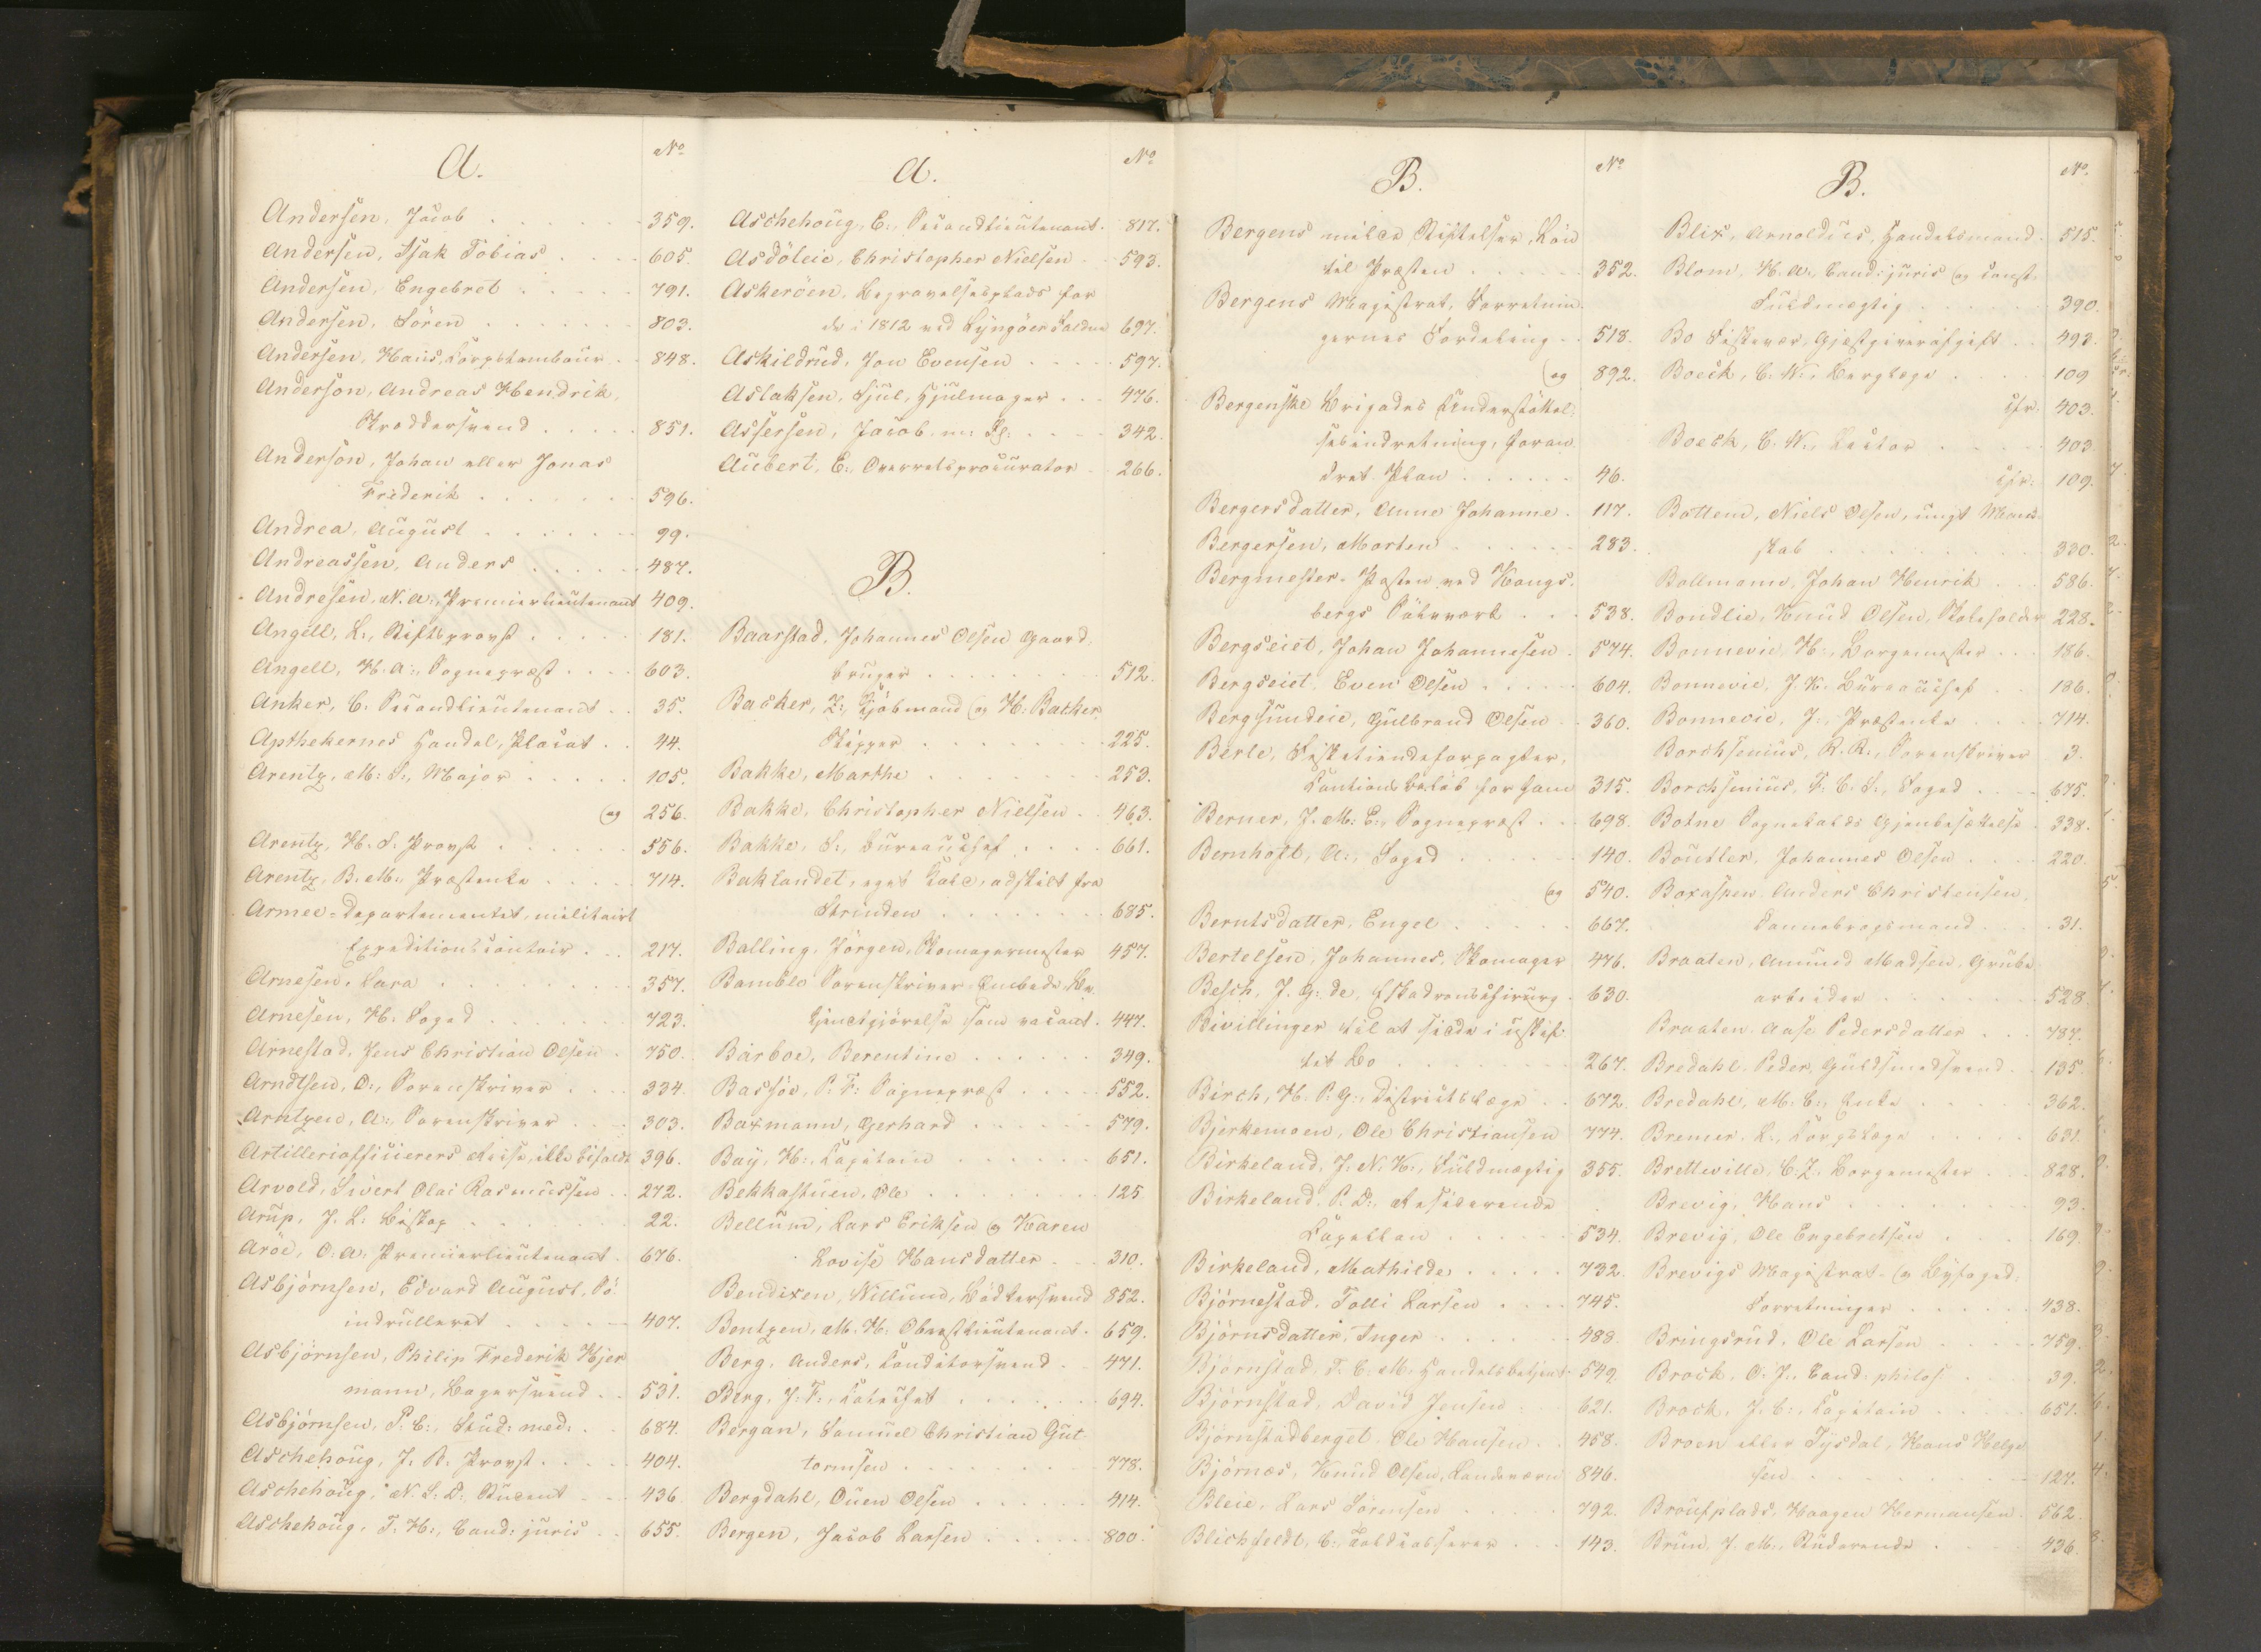 A.
No
Andersen, Jacob . . . . . . 359.
Andersen, Isak Tobias . . . . 605.
Andersen, Engebret . . . . . 791.
Andersen, Sören . . . . . . 803.
Andersen, Hans, Corpstambour . . 848.
Anderson, Andreas Hendrik,
Skræddersvend . . . . . 851.
Anderson, Johan eller Jonas
Frederik . . . . . . . 596.
Andrea, August . . . . . . 99.
Andreassen, Anders . . . . . 487.
Andresen, N. A., Premierlieutenant 409.
Angell, L., Stiftsprovst . . . . . 181.
Angell, H. A., Sognepræst . . . . 603.
Anker, C. Secondlieutenant . . 35.
Apothekernes Handel, Placat . . 44.
Arentz, M: S:, Major . . . . . 105.
og 256.
Arentz, H. S. Provst . . . . . . 556.
Arentz, B. M:, Præsteenke . . . . . 714.
Armee-Departementet, militairt
Expeditionscontoir . . . 217.
Arnesen, Lara . . . . . . . . 357.
Arnesen, H: Foged . . . . . . . 723.
Arnestad, Jens Christian Olsen . 750.
Arndtsen, O:, Sorenskriver . . . . 334.
Arntzen, A:, Sorenskriver . . . . 303.
Artilleriofficierers Reise, ikke bifaldt 396.
Arvold, Sivert Olai Rasmussen . . 272.
Arup, J. L: Biskop . . . . . . . 22.
Aröe, O: A: Premierlieutenant . 676.
Asbjörnsen, Edvard August, Sö-
indrulleret . . . . . 407.
Asbjörnsen, Philip Frederik Hjer
mann, Bagersvend . . 531.
Asbjörnsen, P. C:, Stud: med: . . 684.
Aschehoug, J. A. Provst . . . . . 404.
Aschehoug, N. S: D. Student . . . 436
Aschehoug, T: H:, Cand: juris . . 655.
A.
No
Aschehoug, E:, Secondlieutenant . 817.
Asdöleie, Christopher Nielsen . . 593.
Askeröen, Begravelsesplads for
de i 1812 ved Lyngöer faldne 697.
Askildrud, Jon Evensen . . . . . 597.
Aslaksen, Sjul, Hjulmager . . . 476.
Assersen, Jacob m: fl: . . . . 342.
Aubert, E:, Overretsprocurator . 266.
B.
Baarstad, Johannes Olsen Gaard-
bruger . . . . . . . . 512.
Backer, Z:, Kjöbmand og H: Backer,
Skipper . . . . . . . . 225.
Bakke, Marthe . . . . . . . 253.
Bakke, Christopher Nielsen . . 463.
Bakke, S:, Bureauchef . . . . 661.
Baklandet, eget Sogn, adskilt fra
Strinden . . . . . . . . 685.
Balling, Jörgen, Skomagermester 457.
Bamble Sorenskriver Embede, Be-
kjendtgjörelse som vacant . 447.
Barboe, Berentine . . . . . . 349.
Bassöe, P. F: Sognepræst . . . . . 552.
Baxmann, Gerhard . . . . . . 579.
Bay, H:, Capitain . . . . . . 651.
Bekkastuen, Ole . . . . . . . . 125
Bellum, Lars Eriksen og Karen
Lovise Hansdatter . . . 310.
Bendixen, Willum, Bödkersvend 852.
Bentzen, M. H: Oberstlieutenant . 659.
Berg, Anders, Conditorsvend . . 471.
Berg, J: F:, Catechet . . . . . . 694.
Bergan, Samuel Christian Gut-
tormsen . . . . . . . 778.
Bergdahl, Ouen Olsen . . . . . . 414.
Bergen, Jacob Larsen . . . . . 800.
B.
No
Bergens milde Stiftelser, Laan
til Præsten . . . . . . 352.
Bergens Magistrat, Forretnin-
gernes Fordeling . . 518.
og 892.
Bergenske Brigades Understöttel-
sesindretning, foran-
dret Plan . . . . . . 46.
Bergersdatter, Anne Johanne . 117.
Bergersen, Morten . . . . . . 283.
Bergmester-Posten ved Kongs-
bergs Sölvværk . . . 538.
Bergseiet, Johan Johannesen . 574.
Bergseiet, Even Olsen . . . . . 604.
Bergsundeie, Gulbrand Olsen . . 360.
Berle, Fisketiendeforpagter,
Cautionsbelöb for ham 315.
Berner, J. M: E:, Sognepræst . . . 698.
Bernhoft, A:, Foged . . . . . . 140.
og 540.
Berntsdatter, Engel . . . . . 667.
Bertelsen, Johannes, Skomager 476.
Besch, J. G: de, Eskadronschirurg . 630.
Bevillinger til at sidde i uskif-
tet Bo . . . . . . . . 267.
Birch, H. P. G:, Districtslæge . . 672.
Bjerkemoen, Ole Christiansen 774.
Birkeland, J. N. H:, Fuldmægtig 355.
Birkeland, P. D:, Residerende
Capellan . . . . . . 534.
Birkeland, Mathilde . . . . . 732.
Björnestad, Tolli Larsen . . . . 745.
Björnsdatter, Inger . . . . . . 488.
Björnstad, F. C. M. Handelsbetjent . 549.
Björnstad, David Jensen . . . 621.
Björnstadberget, Ole Hansen . . 458.
Björnæs, Knud Olsen, Landeværn 846.
Bleie, Lars Sörensen . . . . . 792.
Blichfeldt, C:, Toldcasserer . . . 143.
B.
No.
Blix, Arnoldus, Handelsmand . 515.
Blom, H. A:, Cand: juris og const.
Fuldmægtig . . . . . . 390.
Bo Fiskevær, Gjæstgiverafgift . . 493.
Boeck, C. W:, Berglæge . . . . 109
cfr: 403.
Boeck, C. W:, Lector . . . . . 403.
cfr: 109.
Bottem, Niels Olsen, ungt Mand-
skab . . . . . . . . . . 330.
Bollmann, Johan Henrik . . . 586.
Bondlie, Knud Olsen, Skoleholder 228.
Bonnevie, H:, Borgemester . . . 186.
Bonnevie, J. K. Bureauchef . . 186.
Bonnevie, J:, Præsteenke . . . . 714.
Borchsenius, R. R:, Sorenskriver 3.
Borchsenius, F. C. S:, Foged . . . . 675.
Botne Sognekalds Gjenbesættelse . 338.
Boutler, Johannes Olsen . . . . 220.
Boxaspen, Anders Christensen,
Dannebrogsmand . . . . 31.
Braaten, Amund Madsen, Grube-
arbeider . . . . . . . 528.
Braaten, Aase Pedersdatter . . . 787.
Bredahl, Peder, Guldsmedsvend . . 135.
Bredahl, M. C:, Enke . . . . . 362.
Bremer, L:, Corpslæge . . . . . 631.
Bretteville, C. Z:, Borgemester . . 828.
Brevig, Hans . . . . . . . . . 93.
Brevig, Ole Engebretsen . . . . 169.
Brevigs Magistrat- og Byfoged-
forretninger . . . . . . 438.
Bringsrud, Ole Larsen . . . . . 759.
Broch, O. J., Cand: philos: . . . 39.
Broch, J. C:, Capitain . . . . . 651.
Broen eller Tysdal, Hans Helge-
sen . . . . . . . . . . 127.
Broufplads, Haagen Hermansen . 562.
Brun, J. M:, Studerende . . . . 436.